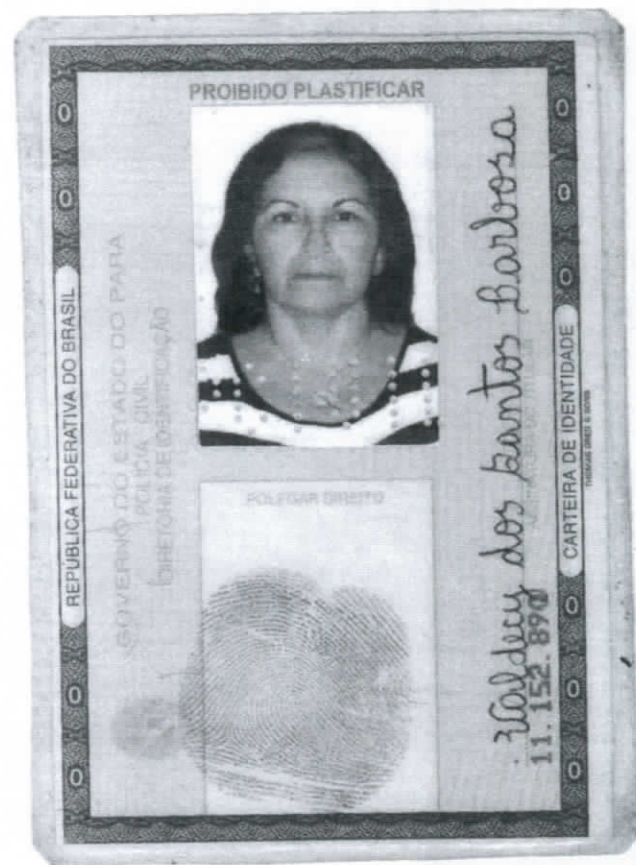 PROIBIDO PLASTIFICAR
REPÚBLICA FEDERATIVA DO BRASIL
GOVERNO DO ESTADO DO PARA
POLICIA CIVIL
DIRETORIA DE IDENTIFICAÇÃO
POLEGAR DIREITO
Valdecy dos Santos Barbosa
11.152.890
CARTEIRA DE IDENTIDADE